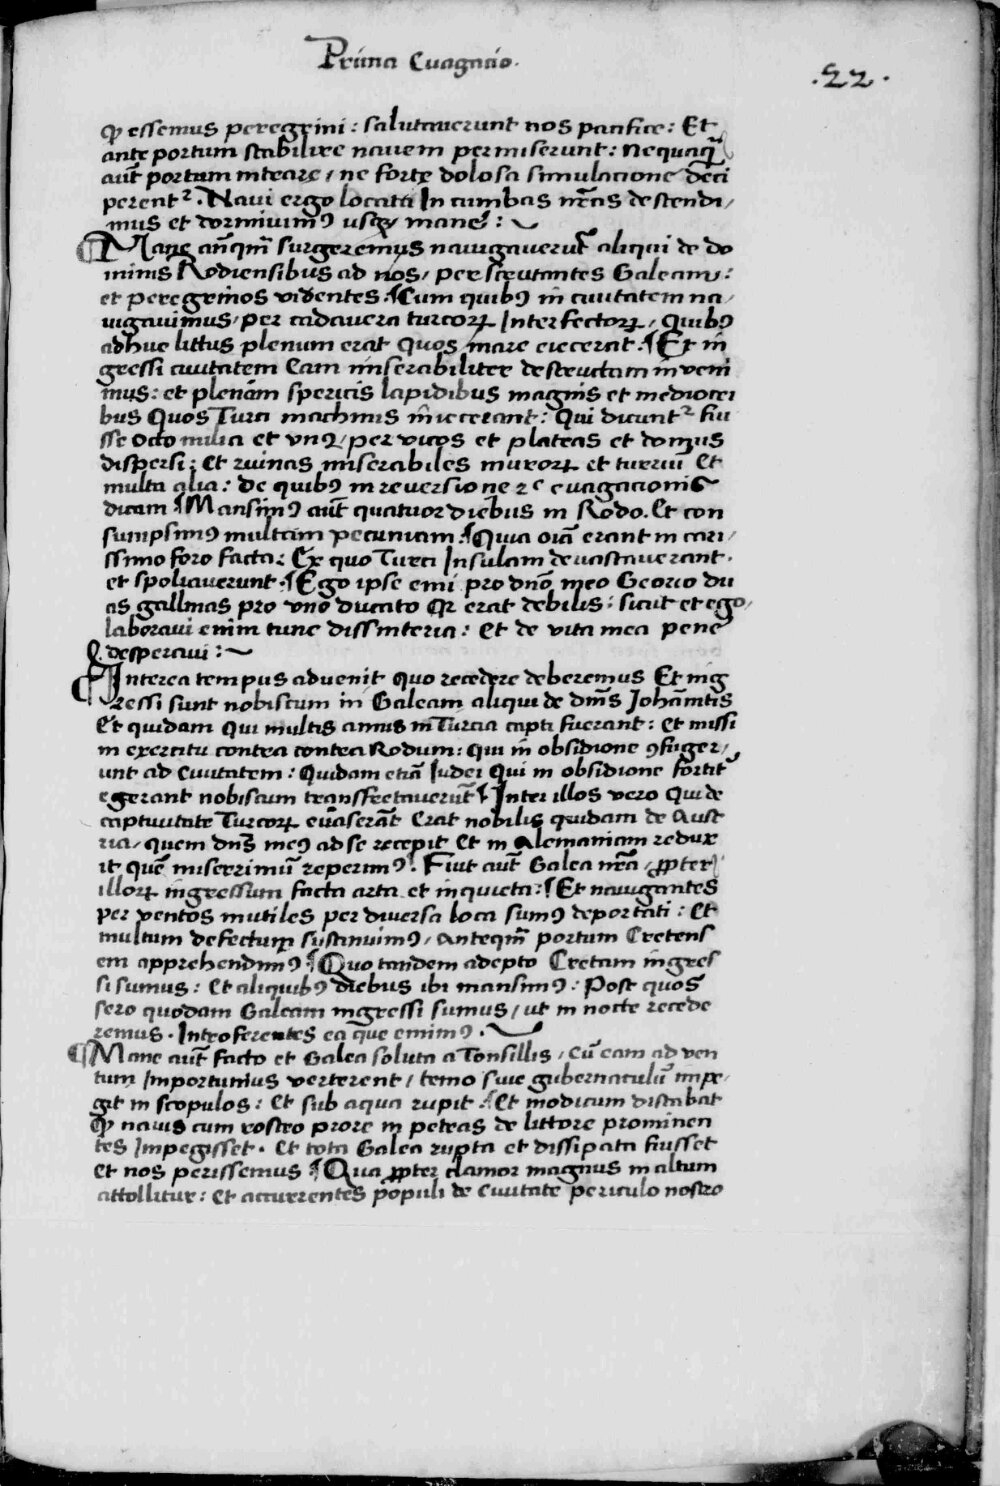 Prima Evagacio.
.22.
ꝙ essemus peregrini : salutaverunt nos pacifice : Et
ante portum stabilire navem permiserunt : nequaqꝫ̄
aut̄ portum intrare / ne forte dolosa simulacione deci
perentᷣ. Navi ergo locata In cumbas nr̄as descendi/
mus et dormivimꝰ usqꝫ mane :~
¶Mane an̄qm̄ surgeremus navigaverūt aliqui de do
minis Rodiensibus ad nos / perscrutantes Galeam :
et peregrinos videntes . ¶Cum quibꝰ in civitatem na/
vigavimus / per cadavera turcoꝝ Interfectoꝝ / Quibꝰ
adhuc littus plenum erat Quos mare eiecerat . ¶Et in
gressi civitatem Eam miserabiliter destructam inveni
mus : et plenam spericis lapidibus magnis et mediocri
bus Quos Turci machinis iniecerant : Qui dicuntᷣ fui
sse octo milia et vnꝰ / per vicos et plateas et domus
dispersi : Et ruinas miserabiles muroꝝ et turriū Et
multa alia : de quibꝰ in reversione 2ᵉ evagacionis
dicam ¶Mansimꝰ aut̄ quatuor diebus in Rodo . Et con
sumpsimꝰ multam pecuniam . ¶Quia oīa erant in cari/
ssimo foro facta : Ex quo Turci Insulam devastaverant .
et spoliaverunt . ¶Ego ipse emi pro dn̄o meo Georio du
as gallinas pro vno ducato Qr erat debilis : sicut et ego /
laboravi enim tunc dissinteria : Et de vita mea pene
desperavi :~
¶Interea tempus advenit quo recedere deberemus Et ing
ressi sunt nobiscum in Galeam aliqui de dn̄is Johān̄itis
Et quidam Qui multis annis in Turcia capti fuerant : Et missi
in exercitu contra contra Rodum : Qui in obsidione ꝯfuger/
unt ad Civitatem : Quidam etiā Iudei Qui in obsidione fortit᷑
egerant nobiscum transfretaverūt ¶Inter illos vero Qui de
captivitate Turcoꝝ evaserāt Erat nobilis quidam de Aust
ria / quem dn̄s meꝰ ad se recepit Et in Alemaniam redux
it Quē miserrimū reperimꝰ . Fiut aut̄ Galea nr̄a / ꝓpter
illoꝝ ingressum facta arta et inquieta : ¶Et navigantes
per ventos inutiles per diversa loca sumꝰ deportati : Et
multum defectum sustinuimꝰ / Anteqm̄ portum Cretens
em apprehendimꝰ . ¶Quo tandem adepto Cretam ingres
si sumus : Et aliquibꝰ diebus ibi mansimꝰ : Post quos
sero quodam Galeam ingressi sumus / ut in nocte recede
remus . Introferentes ea que emimꝰ .~
¶Mane aut̄ facto et Galea soluta a Tonsillis / Cū eam ad ven
tum Importunius verterent / temo sive gubernaculū impe/
git in scopulos : Et sub aqua rupit . ¶Et modicum distabat
ꝙ navis cum rostro prore in petras de littore prominen
tes Impegisset . Et tota Galea rupta et dissipata fuisset
Et nos perissemus ¶Qua ꝓpter clamor magnus in altum
attollitur : Et accurrentes populi de Civitate periculo nostro